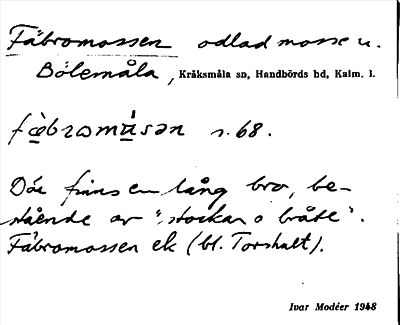 Fäbromossen odlad mosse u.
Bölemåla, Kråksmåla sn, Handbörds hd, Kalm. l.
fæ̀bromúsən s. 68.
Där finns en lång bro, be-
stående av "stockar o bråte".
Fäbromossen ek (bl. Torshult).
Ivar Modéer 1948